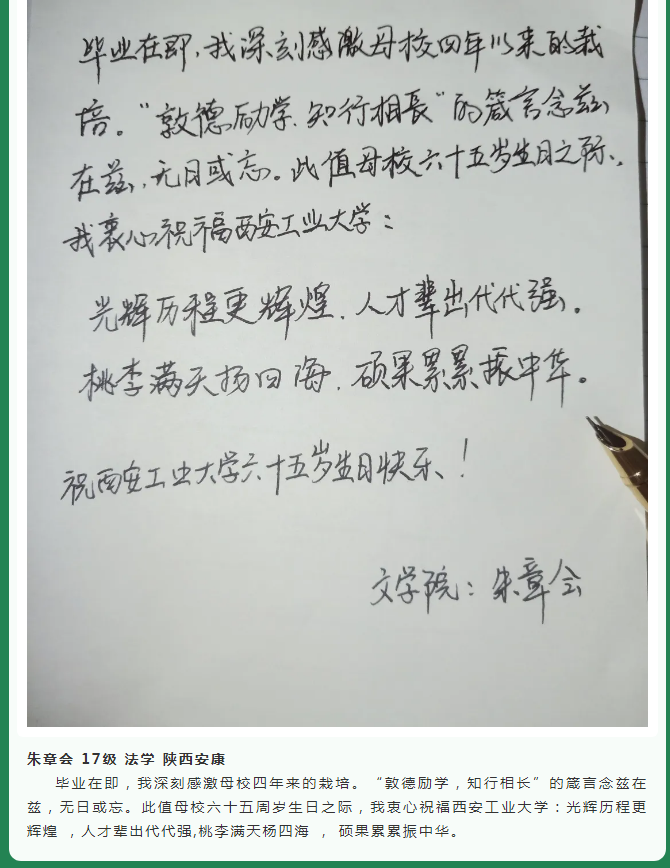 毕业在即，我深刻感激母校四年以来的栽
培。“敦德励学、知行相长”的箴言念兹
在兹，无日或忘。此值母校六十五岁生日之际，
我衷心祝福西安工业大学：
光辉历程更辉煌，人才辈出代代强。
桃李满天扬四海，硕果累累振中华。
祝西安工业大学六十五岁生日快乐！
文学院：朱章会
朱章会 17级 法学 陕西安康
毕业在即，我深刻感激母校四年来的栽培。“敦德励学，知行相长”的箴言念兹在
兹，无日或忘。此值母校六十五周岁生日之际，我衷心祝福西安工业大学：光辉历程更
辉煌 ，人才辈出代代强,桃李满天杨四海 ， 硕果累累振中华。